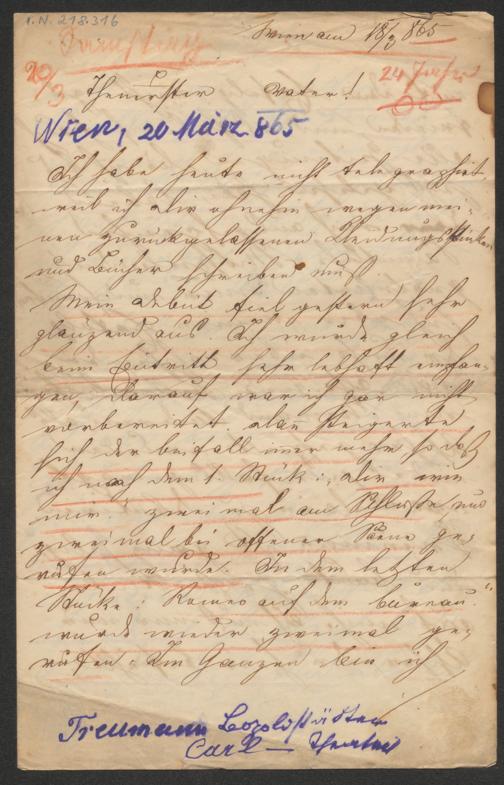 I.N. 218.316
Wien am 18/3 865
20/3
24 Jahre
Theuerster Vater!
Wien, 20 März 865
Ich habe heute nicht telegraphirt
weil ich dir ohnehin wegen mei-
nen zurückgelassenen Kleidungsstücken
und Bücher schreiben muß.
Mein Debüt fiel gestern sehr
glänzend aus. Ich wurde gleich
beim Eintritt sehr lebhaft empfan-
gen, darauf war ich gar nicht
vorbereitet, dann steigerte
sich der beifall immer mehr so daß
ich nach dem 1. Stück: „Dir wie
mir" zweimal am Schluße, und
zweimal bei offener Scene ge-
rufen wurde. In dem letzten
Stücke: Romeo auf dem bureau."
wurde wieder zweimal ge-
rufen. Im Ganzen bin ich
Treumann Leopoldstädter
Carl — Theater